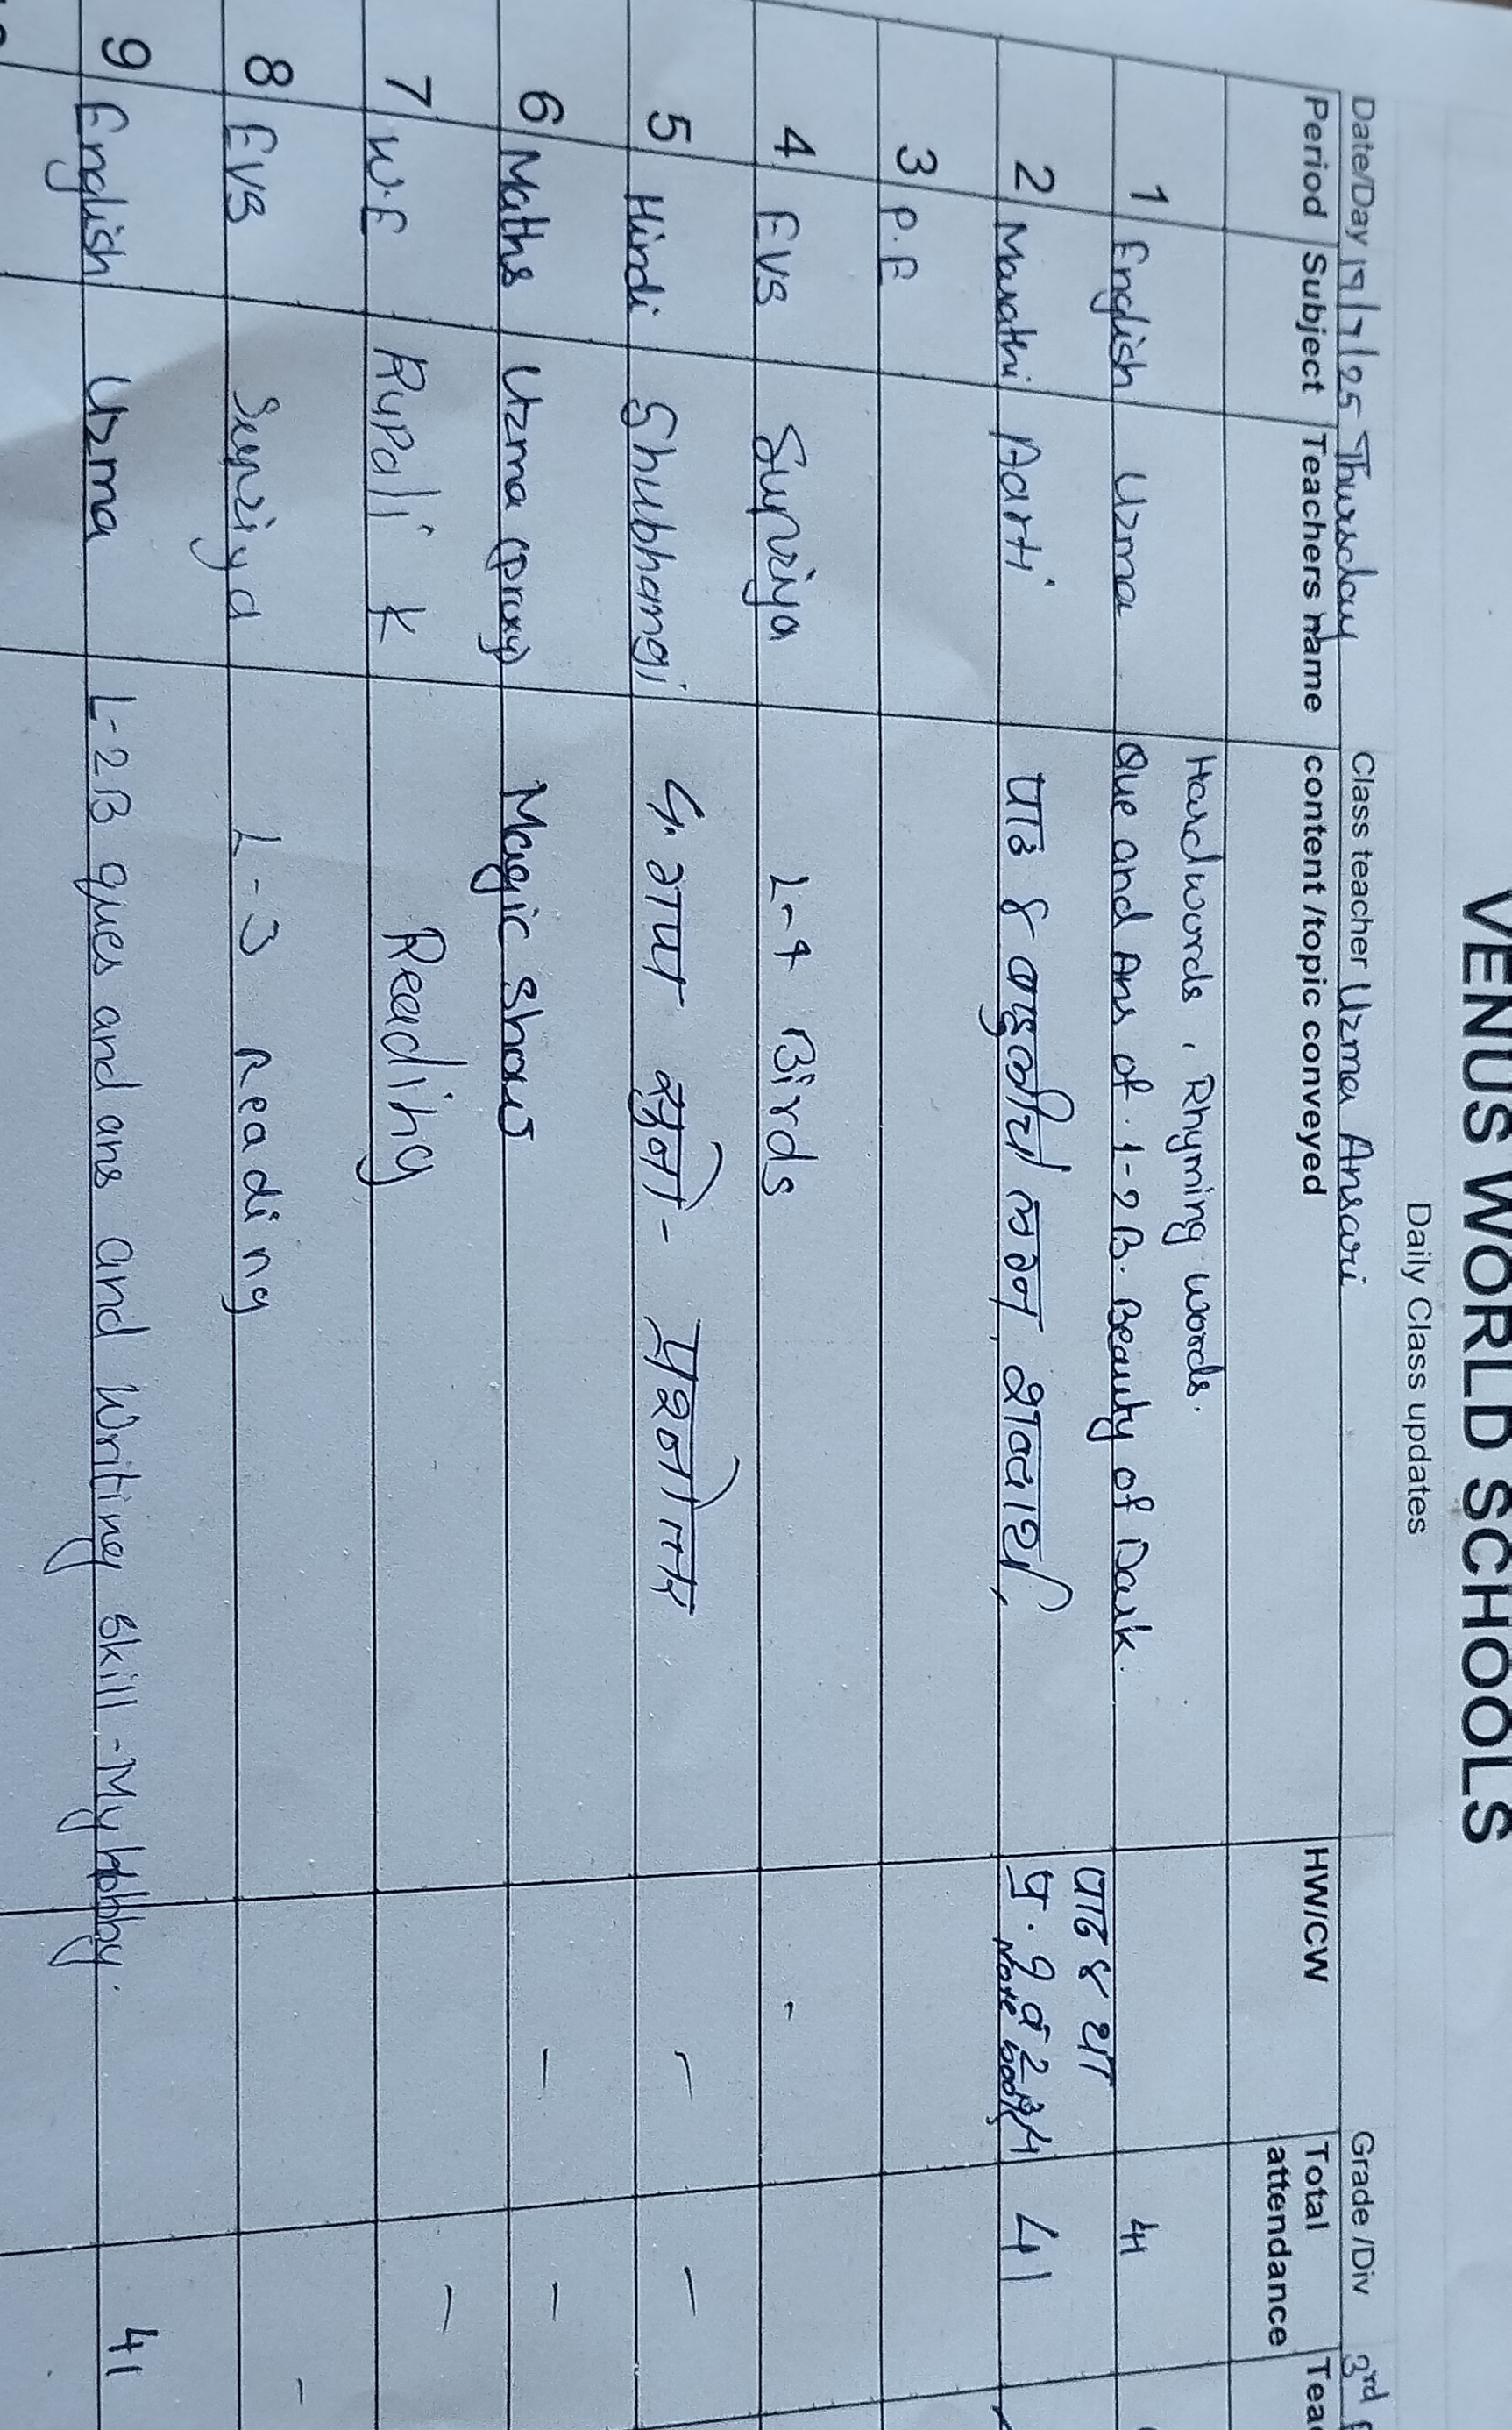 VENUS WORLD SCHOOLS
Daily Class updates
Date/Day 19/7/25 Thursday Class teacher Uzma Ansari Grade /Div 3rd
Period Subject Teachers name content /topic conveyed HW/CW Total attendance
Hard words, Rhyming words.
1 English Uzma Que and Ans of. L-2B. Beauty of Dark. 41
पाठ ४ था
2 Marathi Aarti पाठ ४ वाचन शब्दार्थ, प्र. १ व २
Note book 41
3 P.E
4 EVS Supriya L-4 Birds -
5 Hindi Shubhangi प्रश्नोत्तर - -
6 Maths Uzma (proxy) Magic Show - -
7 W.E Rupali K Reading -
8 EVS Supriya L-3 Reading -
9 English Uzma L-2B ques and ans and Writing skill - My Hobby. 41